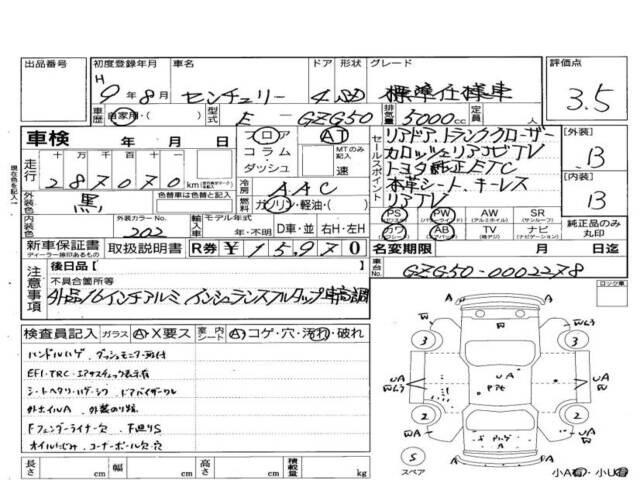 出品番号
初度登録年月 車名 ドア 形状 グレード
H 9年 8月 センチュリー 4 SD 標準仕様車
評価点
3.5
車歴 自家用・( ) 型式 E - GZG50 排気量 5000cc 定員 人
車検 年 月 日
フロア コラム・ダッシュ
AT
MTのみ記入 速
セールスポイント
リアドア、トランククローザー
カロッツェリアナビTV
トヨタ純正ETC
本革シート、キーレス
リアTV
[外装]
B
[内装]
B
走行 十万 万 千 百 十 一
287070 km
冷房 AAC
外装色 黒 色替車は色替と記入
燃料 ガソリン・軽油・( )
内装色 外装カラーNo.
202
輸入車 モデル年式 年・不明 D車・並 右H・左H
PS PW AW SR
(パワステ) (パワーウインド) (アルミホイル) (サンルーフ)
カワ AB TV ナビ
純正品のみ丸印
新車保証書 取扱説明書 R券 ¥15970
ディーラー捺印あるもの
名変期限 月 日迄
車台No. GZG50-0002278
現在色を記入
注意事項
後日品[ ]
不具合箇所等
外品16インチアルミ インシュランスフルタップ車高調
ロック車
検査員記入 ガラス A・X要ス 室内シート A・コゲ・穴・汚れ・破れ
ハンドルハゲ、ダッシュモニター取付
EFI・TRC・エアサスチェック表示有
シートヘタリ・ハゲ・シワ ドアバイザーワレ
外ホイルA
Fフェンダーライナー欠 下廻りS
オイルにじみ、コーナーポール欠・穴
長さ cm 幅 cm 高さ cm 積載量 kg
3 3
2 2
S
スペア
小A有・小U有